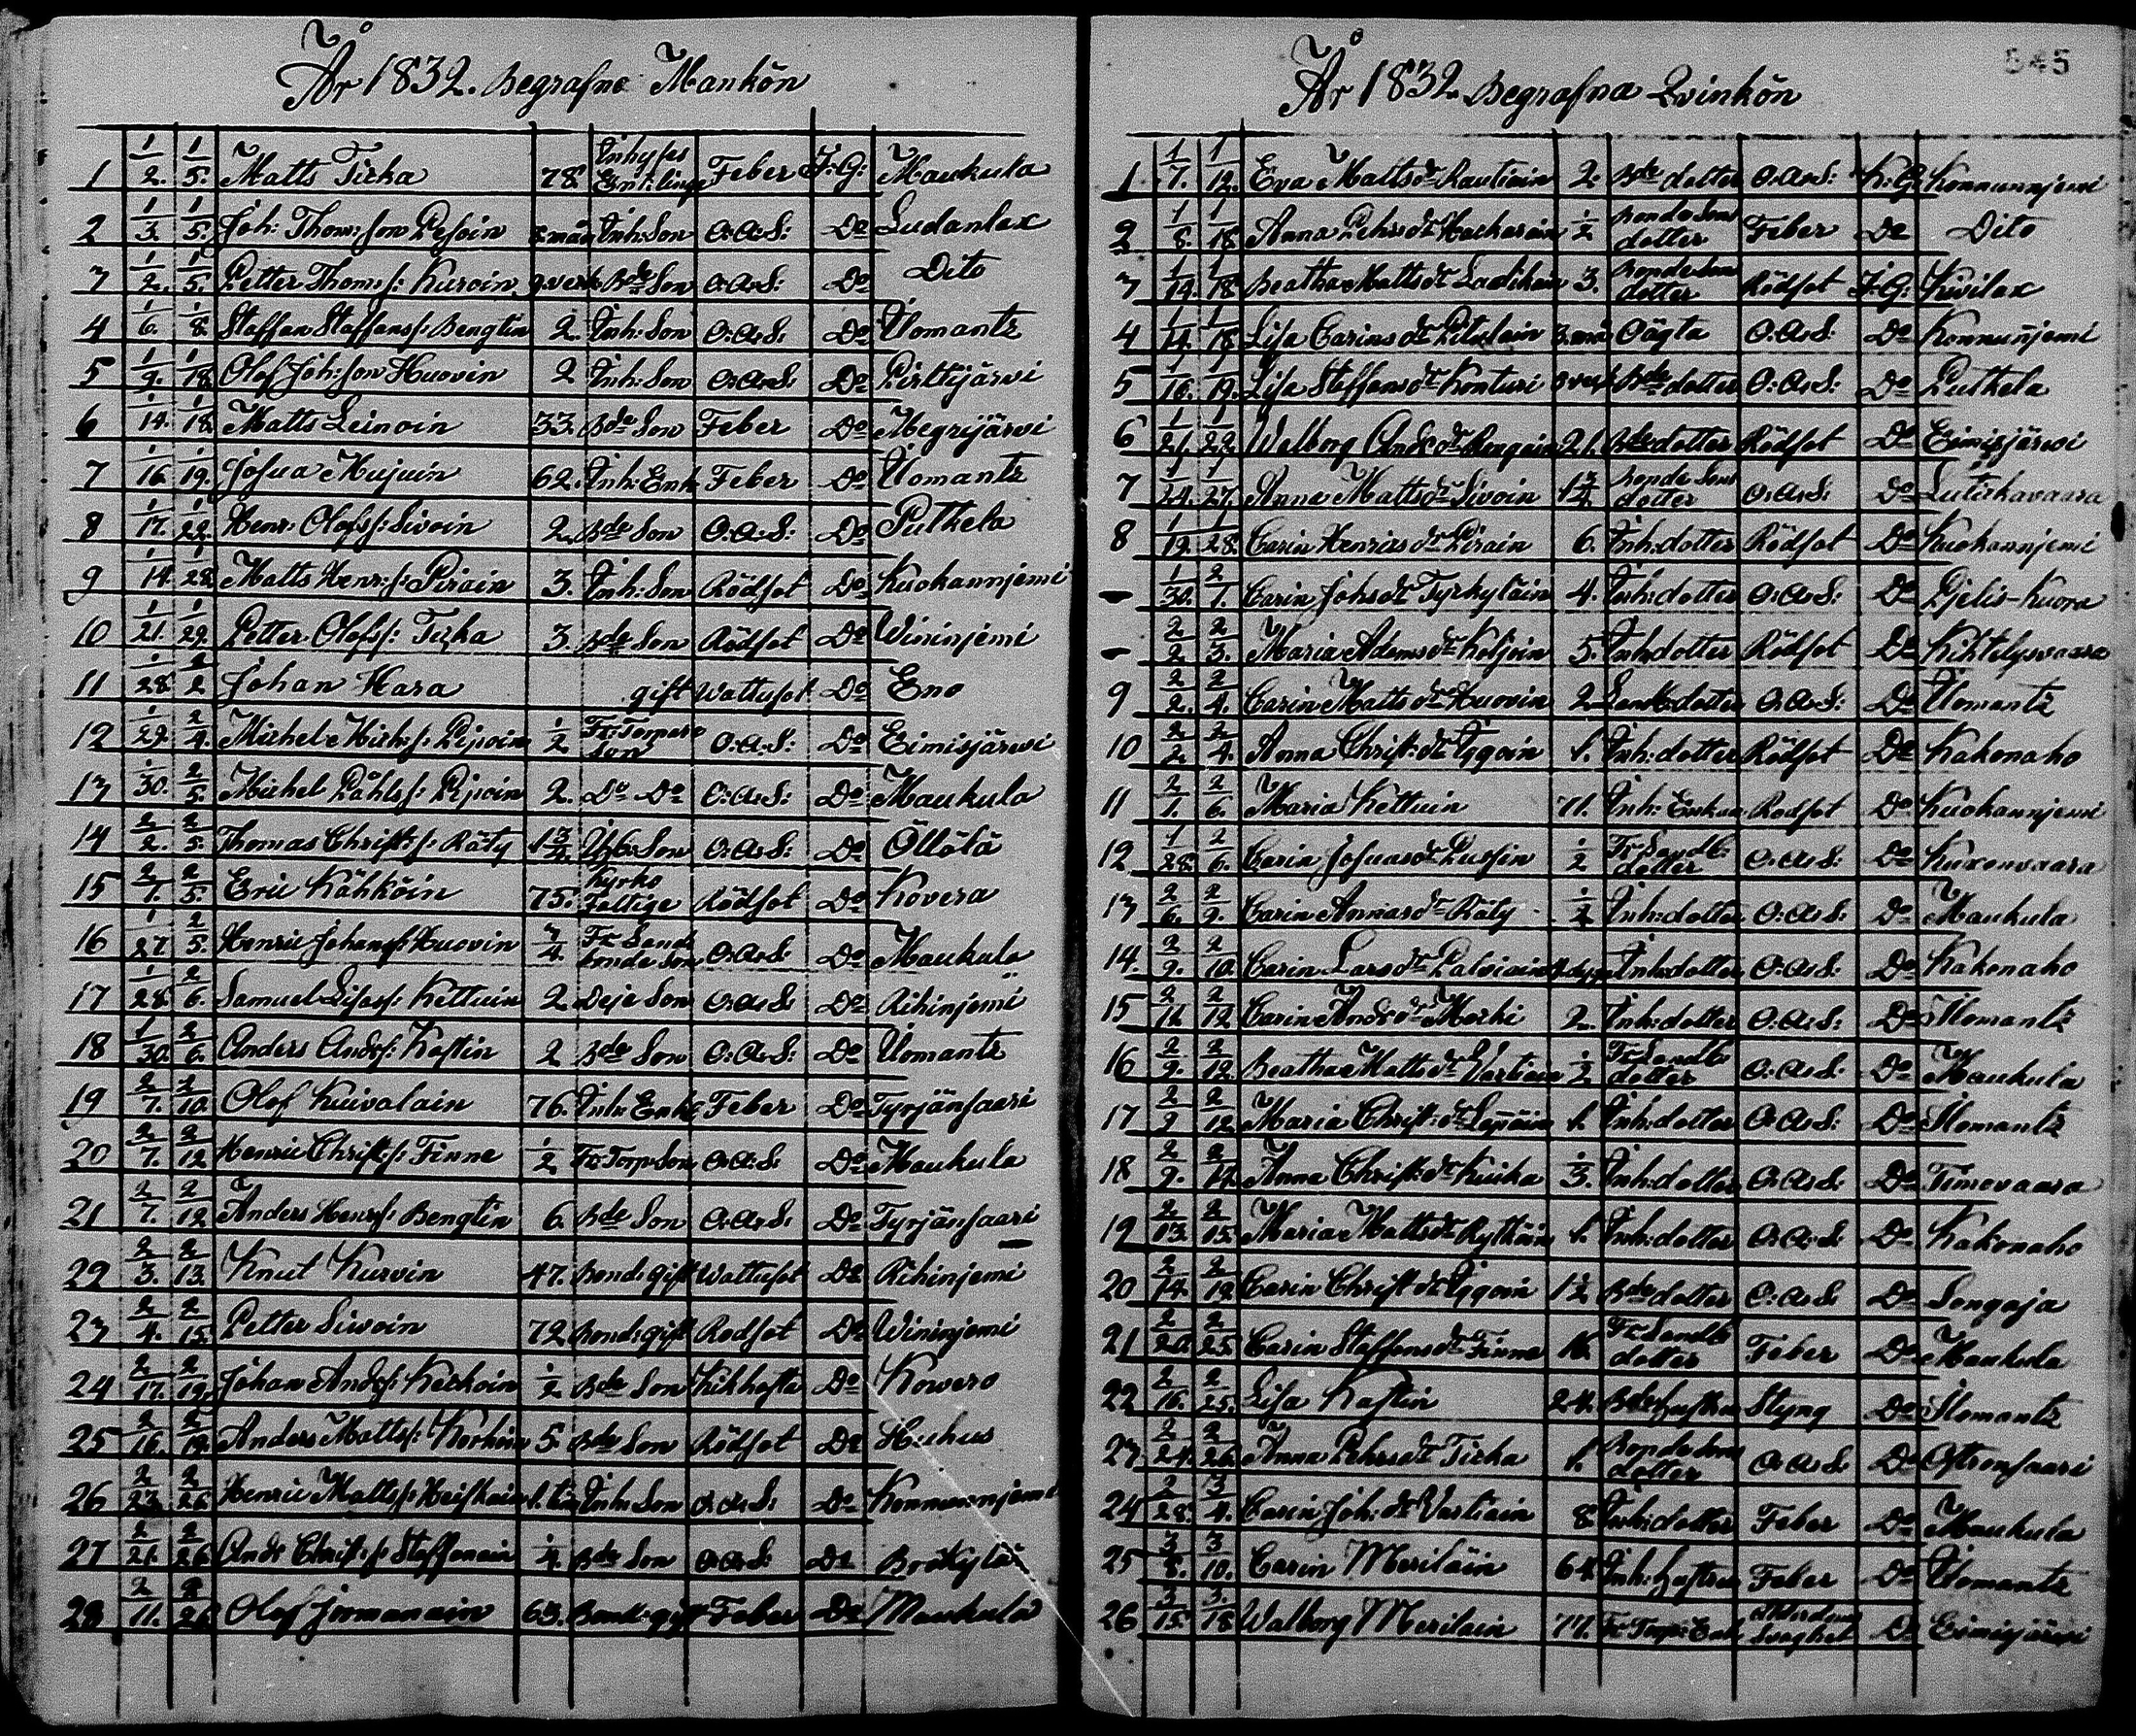 År 1832. Begrafne Mankön
1 1/2. 1/5. Matts Ticka 78. Inhyses Enkling Feber I:G: Maukula
2 1/3. 1/5. Joh: Thom: son Pesoin 8. mån Inh: Son O:A:S: Do Ludanlax
3 1/2. 1/5. Petter Thoms: Kurvin 9. veck Bde Son O:A:S: Do Dito
4 1/6. 1/8. Staffan Staffanss: Bengtin 2. Inh: Son O:A:S: Do Ilomants
5 1/9. 1/18. Olof Joh: son Huovin 2 Inh: Son O:A:S: Do Pirttijärvi
6 1/14. 1/18. Matts Leinoin 33. Bde Son Feber Do Megrijärvi
7 1/16. 1/19. Josua Mujuin 62. Inh: Enk Feber Do Ilomants
8 1/17. 1/22. Henr: Olofs: Sivoin 2. Bde Son O:A:S: Do Putkela
9 1/14. 1/28. Matts Henr: s: Pirain 3. Inh: Son Rödsot Do Kuokannjemi
10 1/21. 1/29. Petter Olofs: Ticka 3. Bde Son Rödsot Do Wininjemi
11 1/28. 2/2 Johan Hara gift Wattusot Do Eno
12 1/29. 2/4. Michel Mich: s: Pijroin 1/2 Son O:A:S: Do Eimisjärwi
13 1/30. 2/5. Michel Påhls: Pijroin 2. Do Do O:A:S: Do Maukula
14 2/2. 2/5. Thomas Christ: s: Räty 1 3/4. Son O:A:S: Do Öllölä
15 2/1. 2/5. Eric Kähköin 75. Kyrko Fattige Rödsot Do Kovera
16 1/27. 2/5. Henric Johans: Huovin 3/4. Fr: Landbonde Son O:A:S: Do Maukula
17 1/28. 2/6. Samuel Lisas: Kettuin 2 Deje Son O:A:S: Do Rihinjemi
18 1/30. 2/6. Anders Ands: Kastin 2 Bde Son O:A:S: Do Ilomants
19 2/7. 2/10. Olof Kuivalain 76. Inh: Enkl Feber Do Tyrjänsaari
20 2/7. 2/12 Henric Christ: s: Finne 1/2 Fr: Torp: Son O:A:S: Do Maukula
21 2/7. 2/12 Anders Henrs: Bengtin 6. Bde Son O:A:S: Do Tyrjänsaari
22 2/3. 2/13. Knut Kurvin 47. Bond: gift Wattusot Do Rihinjemi
23 2/4. 2/15. Petter Siwoin 72 Bond: gift Rodsot Do Wininjemi
24 2/17. 2/19. Johan Ands: Keckoin 1/2 Bde Son Kikhosta Do Kowero
25 2/16. 2/19. Anders Mattss: Korhoin 5. Bde Son Rödsot Do Huhus
26 2/23. 2/26 Henric Matts: Heiskain 1. tim Inh: Son O:A:S: Do Konnunnjemi
27 2/21. 2/26 Ands Christ: s: Staffanain 1/4. Bde Son O:A:S: Do
28 2/11. 2/26 Olof Jormanain 63. Bond: gift Feber Do Maukula
545
År 1832. Begrafna Qvinkön
1. 1/7. 1/12. Eva Matts dr Rautiain 2. Bde dotter O:A:S: K:G: Konnunnjemi
2 1/8. 1/18. Anna Pehrs dr Hackarain 1/2 Bonde Sons dotter Feber Do Dito
3 1/14. 1/18. Beatha Matts dr 3. Bonde Sons dotter Rödsot I:G: Kuilax
4 1/14. 1/18. Lisa Carins dr Pitulain 3. mån Oägta O:A:S: Do Konnunnjemi
5 1/16. 1/19. Lisa Staffans dr Konturi veck Bde dotter O:A:S: Do Putkela
6 1/21. 1/22. Walborg Ands dr 21. Bde dotter Rödsot Do Eimisjärwi
7 1/24. 1/27. Anna Matts dr Sivoin 1 3/4. Bonde Sons dotter O:A:S: Do Lutikkavaara
8 1/19. 1/28. Carin Henrics dr Pirain 6. Inh: dotter Rödsot Do Kuokannjemi
- 1/30. 2/1. Carin Johs dr Tyrkyläin 4. Inh: dotter O:A:S: Do Pjelis-Kuora
- 2/2. 2/3. Maria Adams dr Koljoin 5. Inh: dotter Rödsot Do Kihtelysvaara
9 2/2. 2/4. Carin Matts dr Huovin 2 Landb: dotter O:A:S: Do Ilomants
10 2/2. 2/4. Anna Christ: dr Iggoin 1. Inh: dotter Rödsot Do Kakonaho
11 2/1. 2/6. Maria Kettuin 71. Inh: Enka Rodsot Do Kuokannjemi
12 1/28. 2/6. Carin Josuas dr Pussin 1/2 Fr: Landb: dotter O:A:S: Do Kuxenvaara
13 2/6. 2/9. Carin Annas dr Räty 1/2 Inh: dotter O:A:S: Do Maukula
14 2/9. 2/10. Carin Lars dr Palviain Inh: dotter O:A:S: Do Kakonaho
15 2/11. 2/12 Carin Ands dr Mechi 2. Inh: dotter O:A:S: Do Ilomants
16 2/9. 2/12 Beatha Matts dr Vartiain 1/2 Fr: Landb: dotter O:A:S: Do Maukula
17 2/9 2/12 Maria Christ: dr Leppäin 1. Inh: dotter O:A:S: Do Ilomants
18 2/9. 2/14. Anna Christ: dr Kuika 1/3. Inh: dotter O:A:S: Do Timovaara
19 2/13. 2/15. Maria Matts dr Rytköin 1. Inh: dotter O:A:S Do Kakonaho
20 2/14. 2/19. Carin Christ: dr Iggoin 1 1/2 Bde dotter O:A:S Do Songaja
21 2/20. 2/25. Carin Staffans dr Finne 16. Fr: Landb: dotter Feber Do Maukula
22 2/16. 2/25. Lisa Kastin 24. Bde hustru Styng Do Ilomants
23 2/24. 2/26 Anna Pehrs dr Ticka 1. Bonde Sons dotter O:A:S: Do
24 2/28. 3/4. Carin Joh: dr Vartiain 8. Inh: dotter Feber Do Maukula
25 3/8. 3/10. Carin Meriläin 64. Inh: hustru Feber Do Ilomants
26 3/15. 3/18 Walborg Meriläin 77. Fr: Torp: Enk Ålderdoms Svaghet Do Eimisjärwi